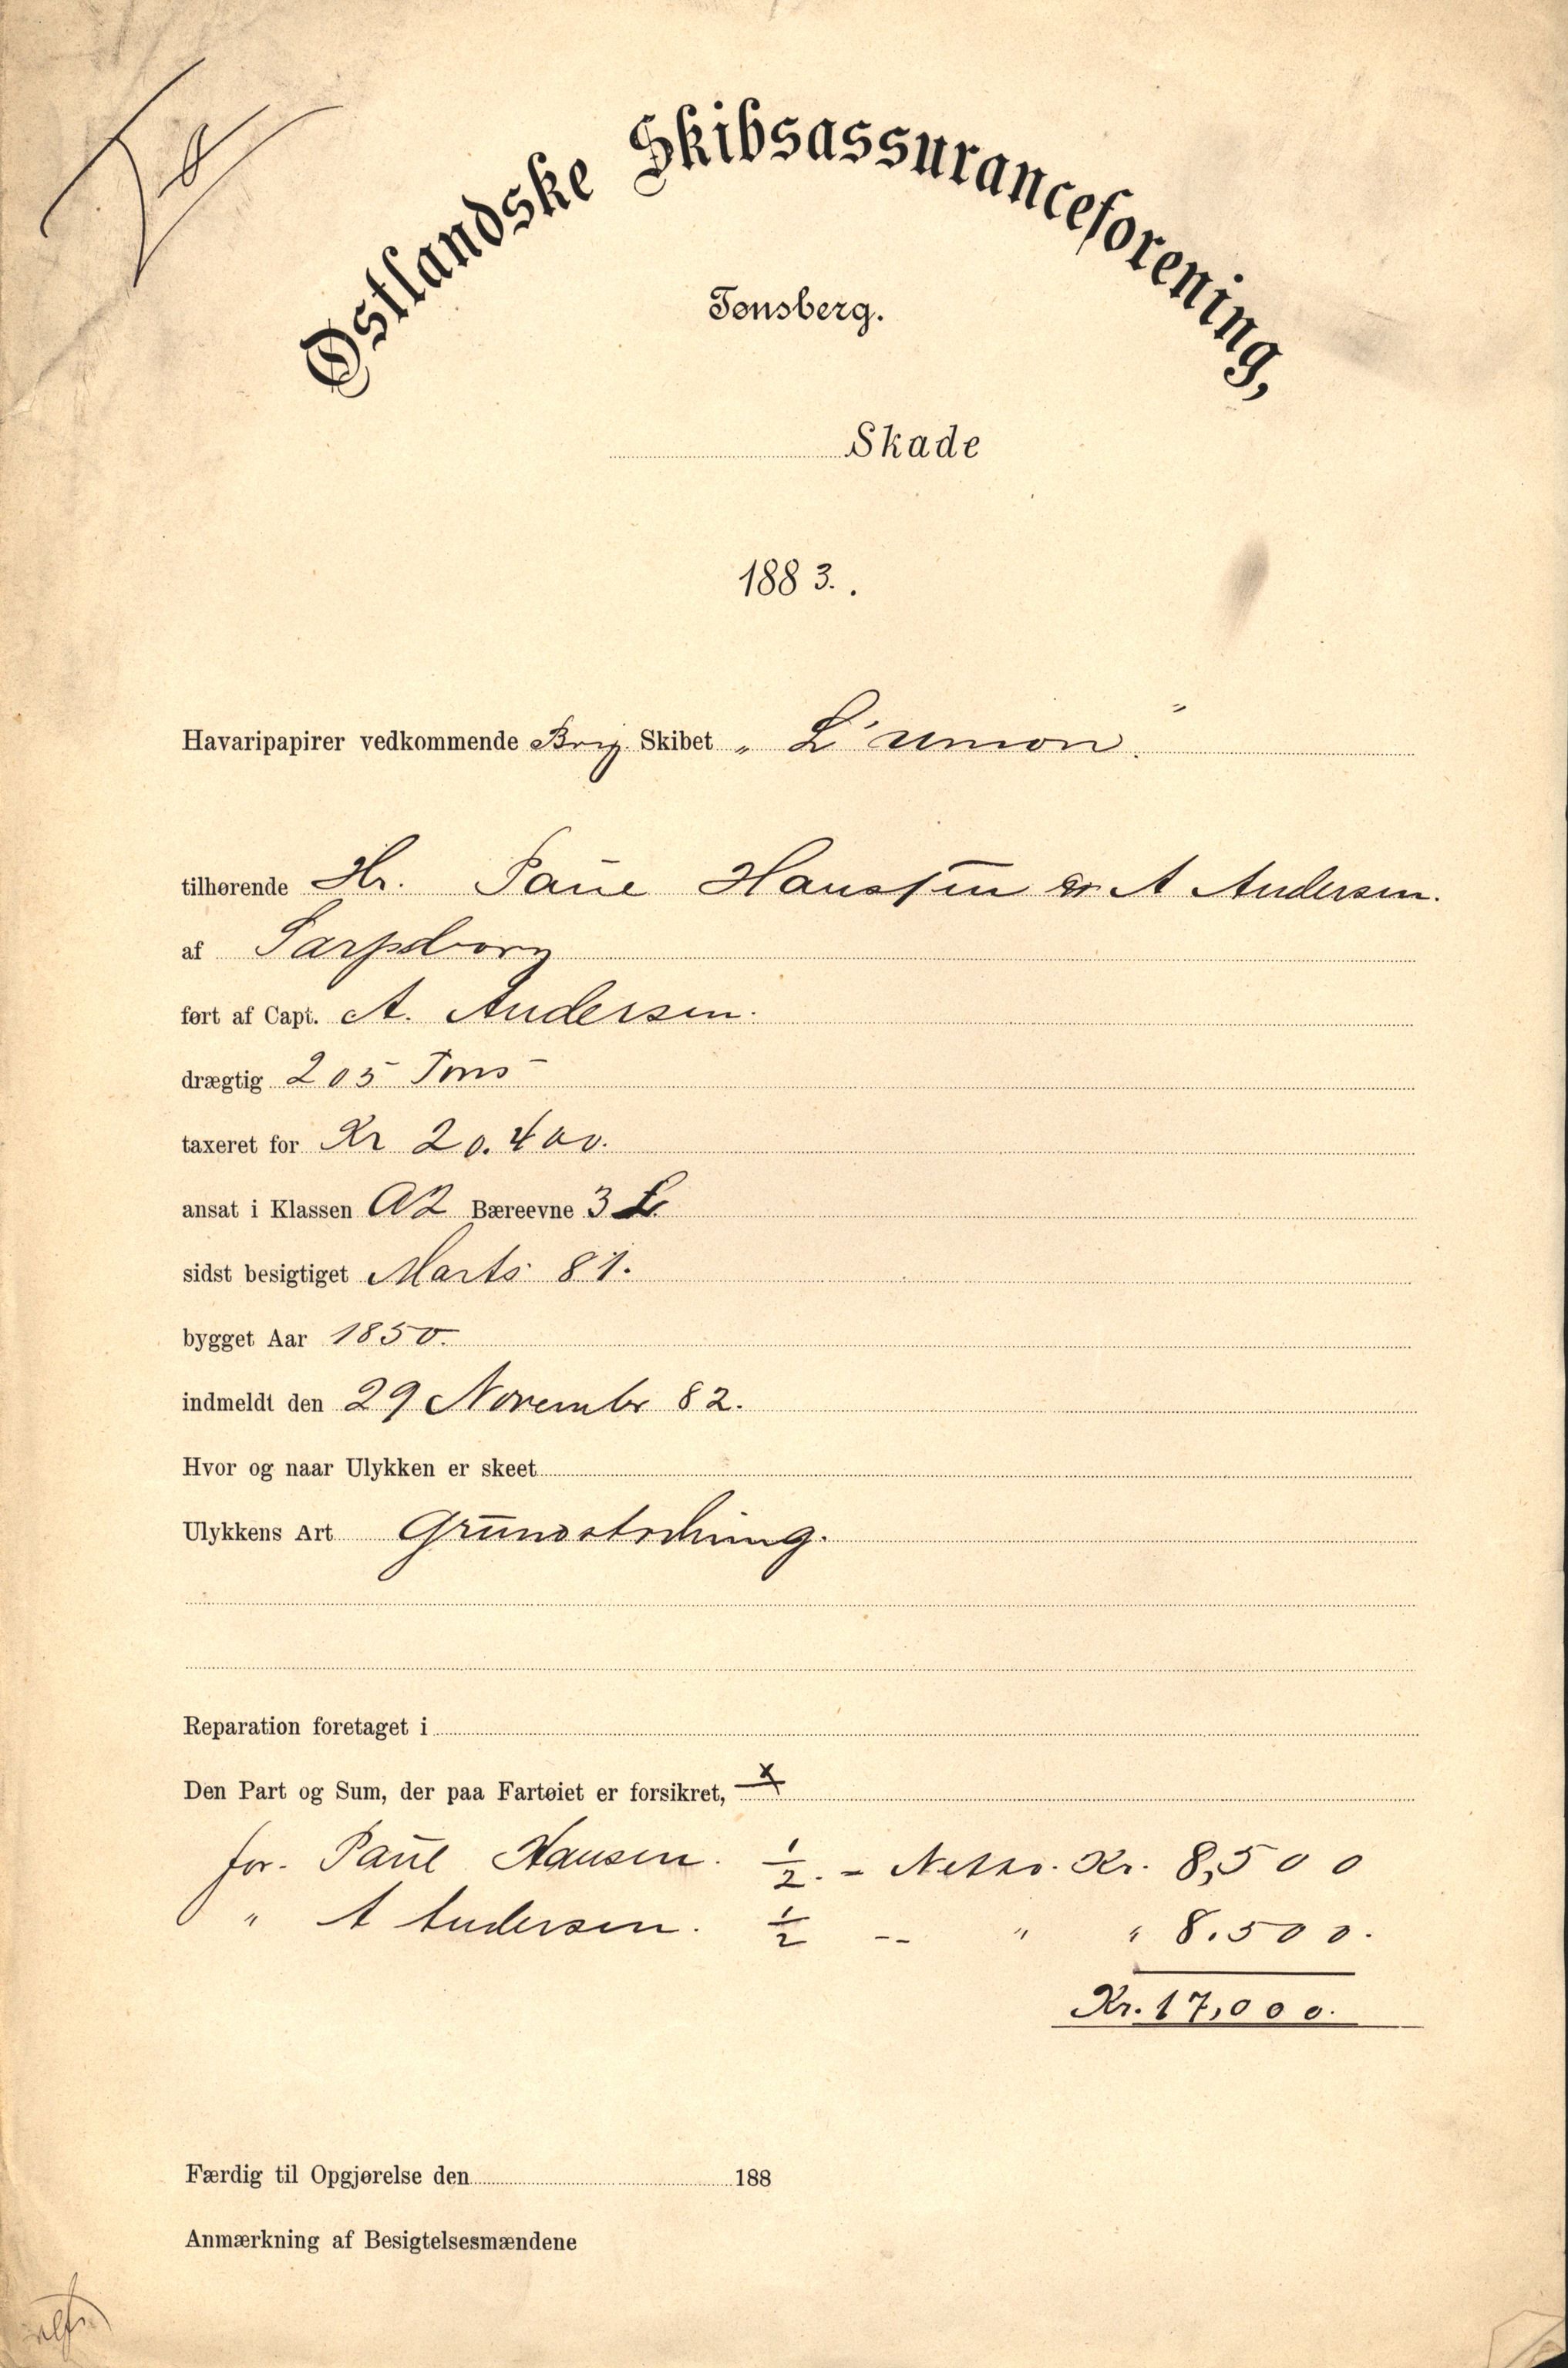 Østlandske Skibsassuranceforening,
Tønsberg.
Skade
1883.
Havaripapirer vedkommende Brig Skibet „ L'union. "
tilhørende Hr. Paul Hanssen & A Andersen.
af Sarpsborg
ført af Capt. A. Andersen.
drægtig 205 Tons
taxeret for Kr 20.400.
ansat i Klassen A2 Bæreevne 3 L
sidst besigtiget Marts 81.
bygget Aar 1850.
indmeldt den 29 Novembr 82.
Hvor og naar Ulykken er skeet
Ulykkens Art Grundstødning.
Reparation foretaget i
Den Part og Sum, der paa Fartøiet er forsikret, x
for. Paul Hansen. 1/2. - Netto. Kr. 8,500
" A Andersen. 1/2 -- " " 8.500.
Kr. 17,000.
Færdig til Opgjørelse den 188
Anmærkning af Besigtelsesmændene